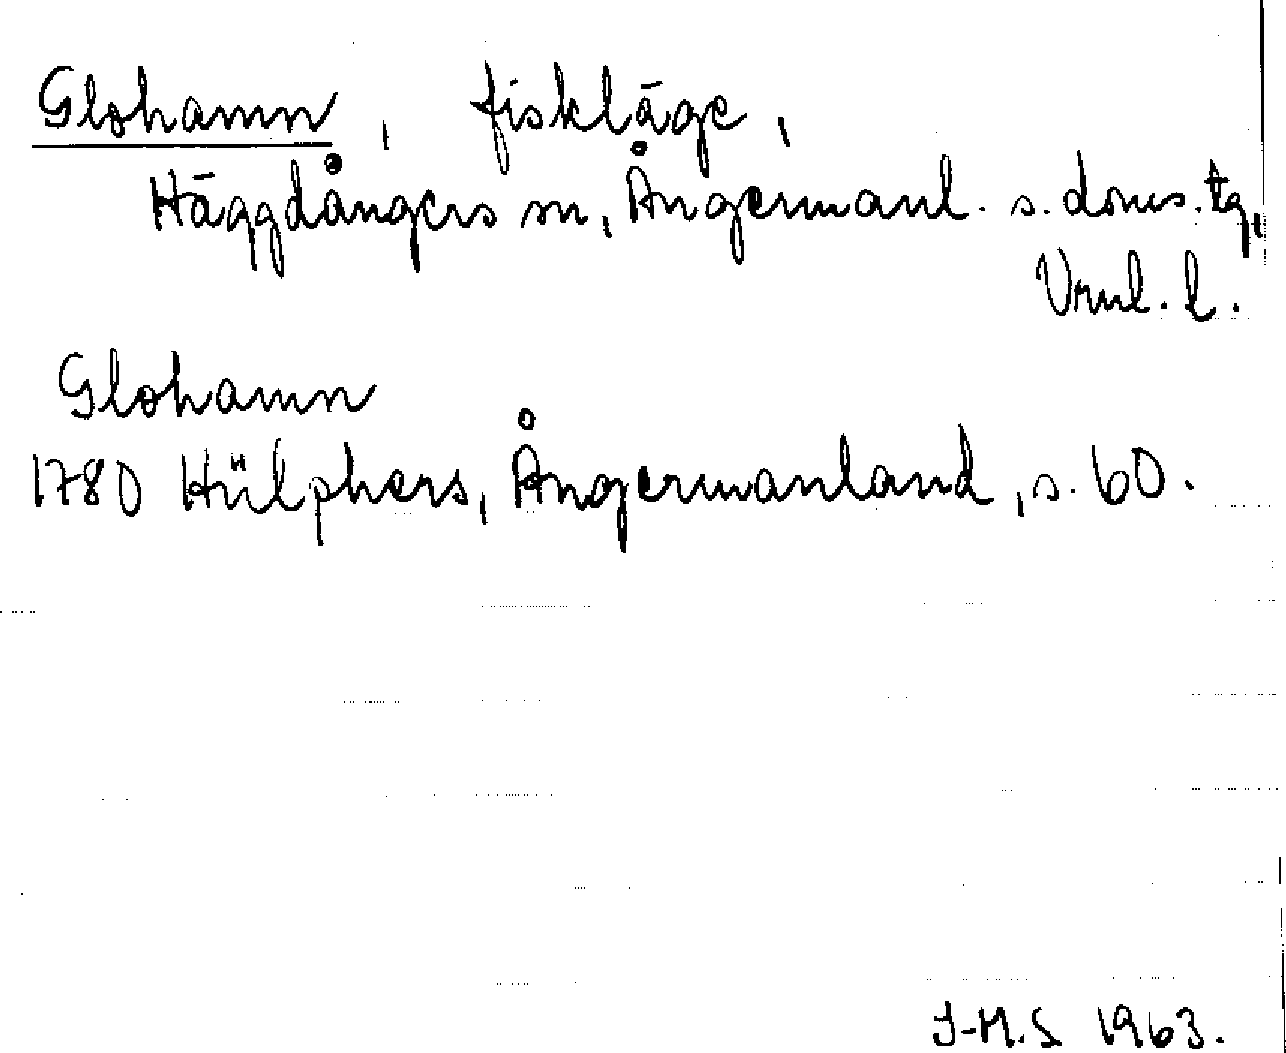 Glohamn, fiskläge,
Häggdångers sn, Ångermanl. s. doms. tg,
Vrnl. l.
Glohamn
1780 Hülphers, Ångermanland, s. 60.
J-M.S 1963.